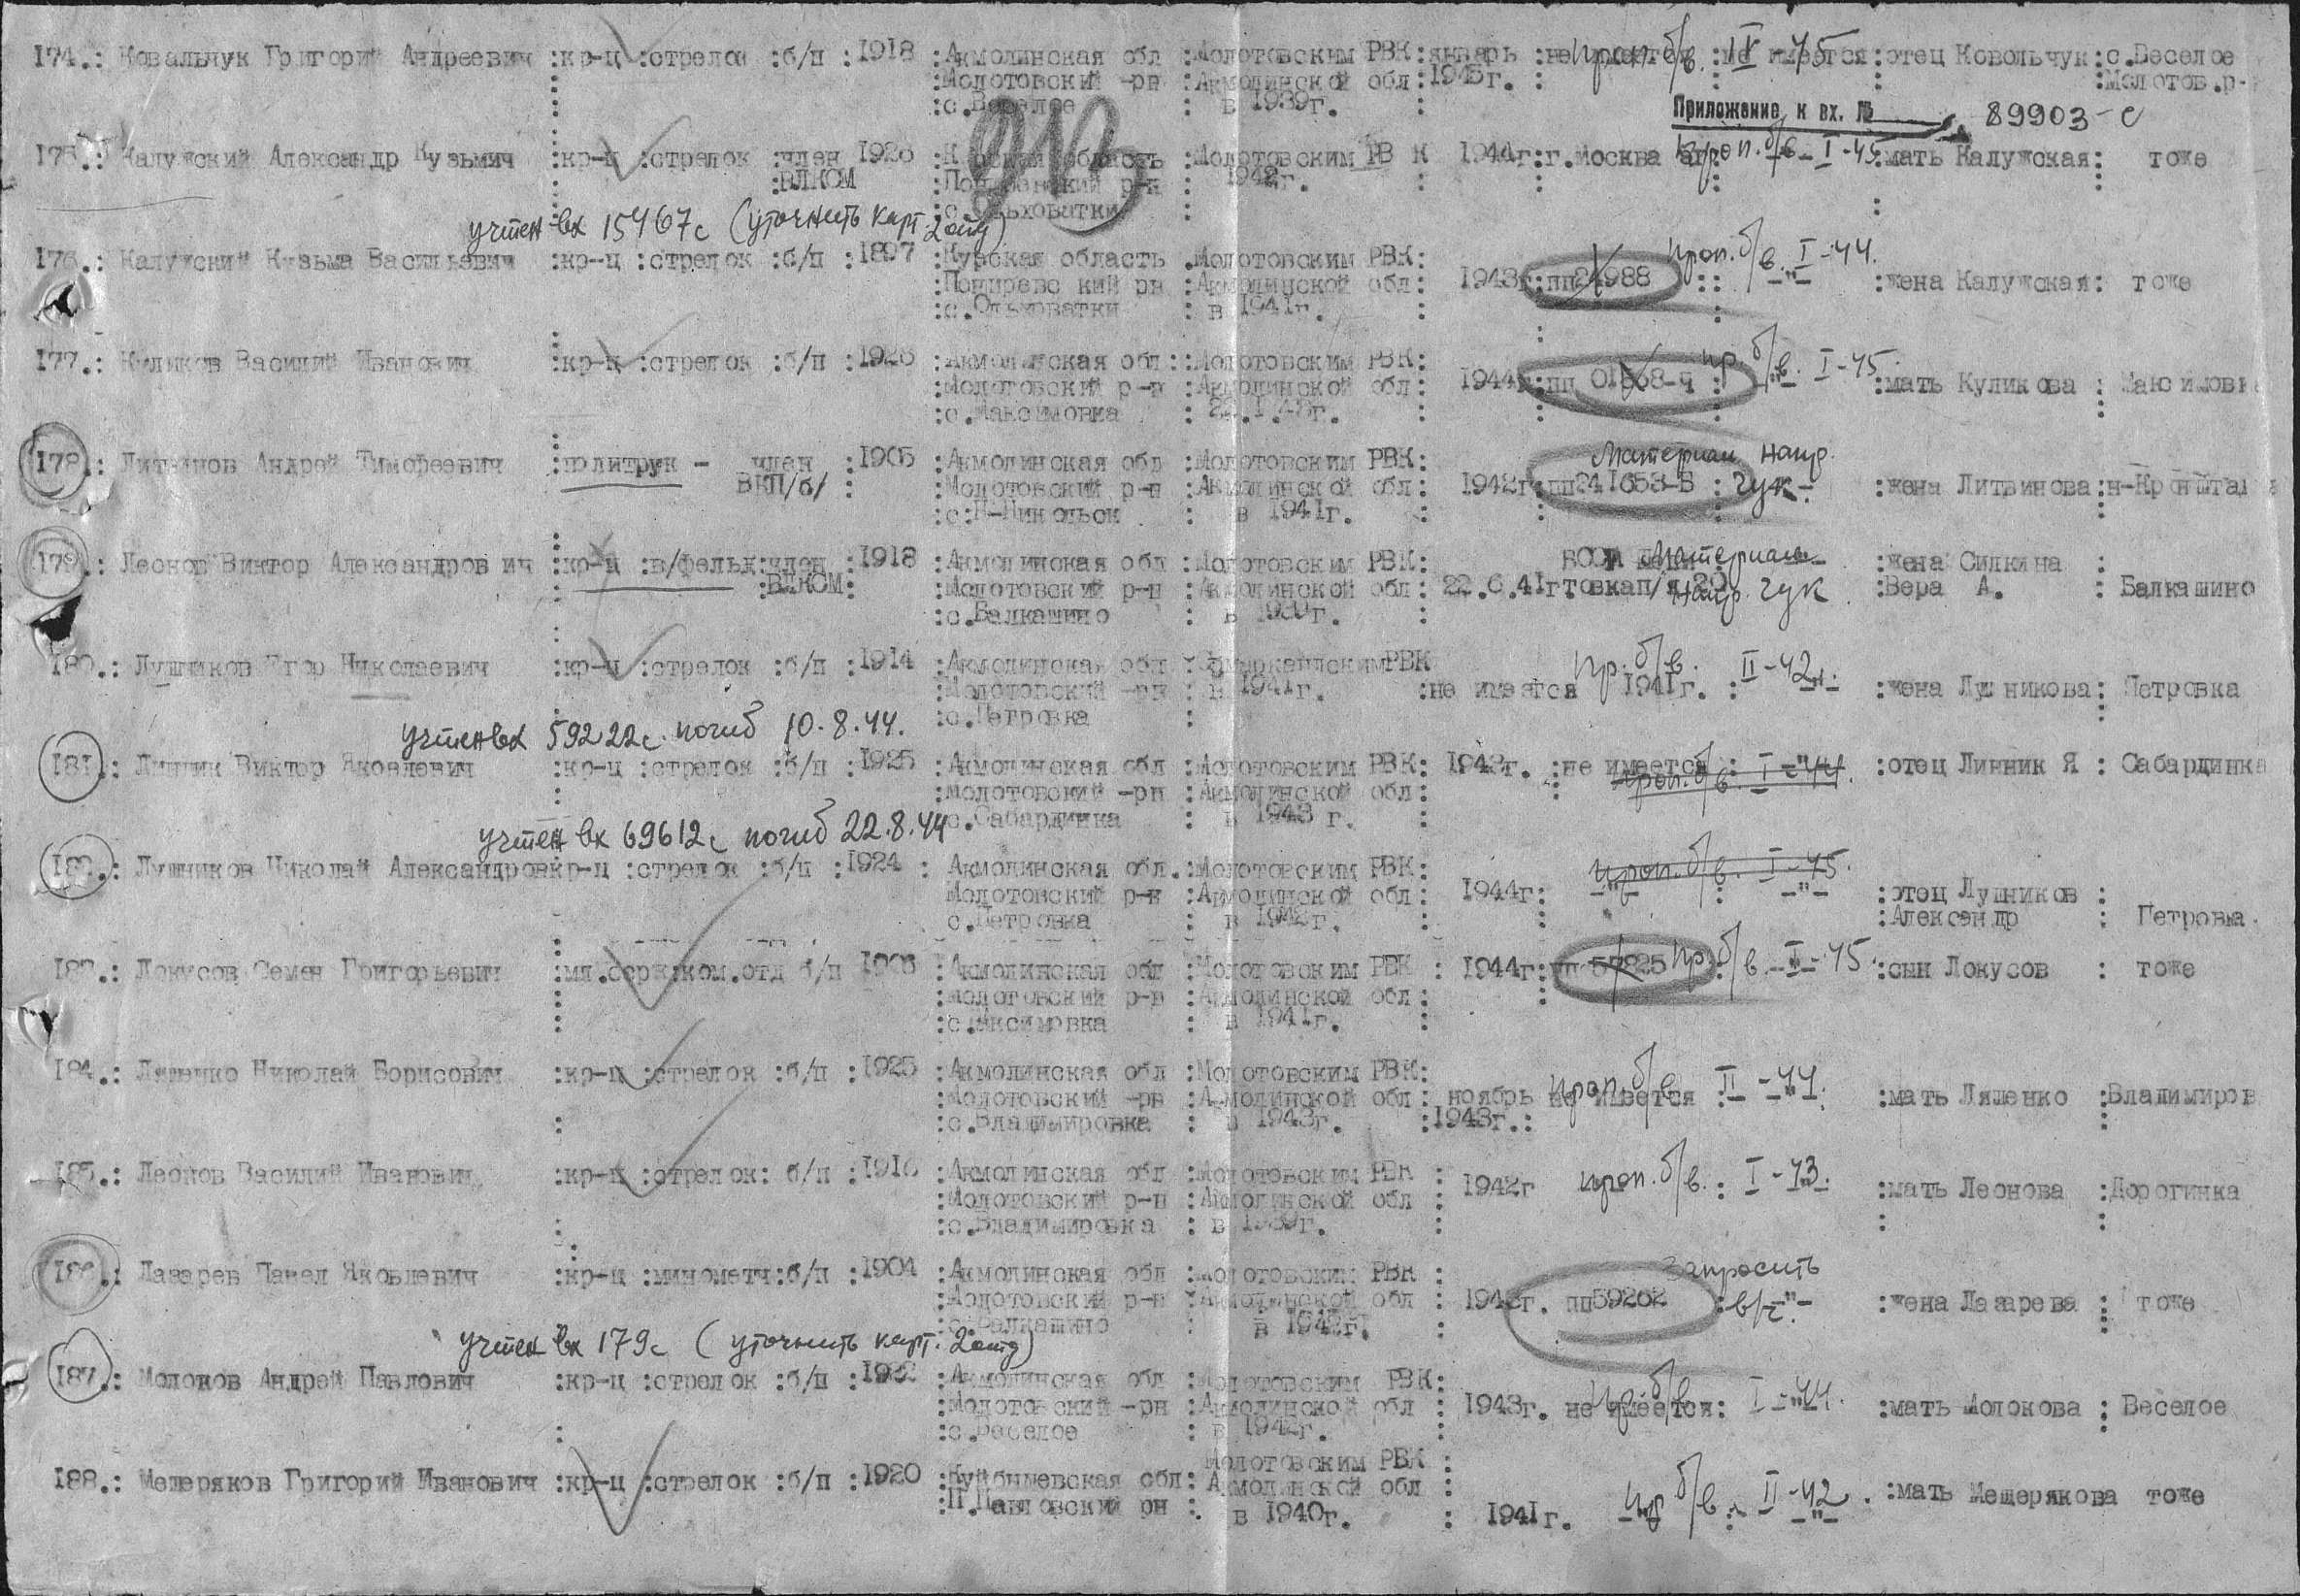 174.: Ковальчук Григорий Андреевич :кр-ц :стрелок :б/п :1918 :Акмолинская обл :Молотовским РВК:январь :не имеется :не имеется:отец Ковольчук:с.Веселое
проп. б/в. IV-45
:Молотовский -рн :Акмолинской обл:1945г. : :Молотов.р-
:с.Веселое в 1939г.
Приложение к вх. № 89903-с
175.: Калужский Александр Кузьмич :кр-ц :стрелок :член 1926 :Курская область :Молотовским РВ К 1944г:г.Москва проп. б/в I-45 :мать Калужская: тоже
:ВЛКСМ :Поныревский р-н : 1942г.
:с.Ольховатки :
учтен вх 15467с (уточнить карт. 2отд)
176.: Калужский Кузьма Васильевич :кр-ц :стрелок :б/п :1897 :Курская область :Молотовским РВК: проп. б/в. I-44.
:Поныревс кий рн :Акмолинской обл: 1943г:пп24988 : -"- :жена Калужская: тоже
:с.Ольховатки : в 1941г.
177.: Куликов Василий Иванович :кр-ц :стрелок :б/п :1926 :Акмолинская обл::Молотовским РВК: пр. б/в. I-45.
:Молотовский р-н :Акмолинской обл: 1944г:пп 01868-Ч : -"- :мать Куликова : Максимовка
:с.Максимовка :
178.: Литвинов Андрей Тимофеевич :политрук - член :1905 :Акмолинская обл :Молотовским РВК: Материал напр.
ВКП/б/ : :Молотовский р-н :Акмолинской обл: 1942г:пп241653-Б : ГУК- :жена Литвинова:н-Кронштад
:с.Н-Никольск : в 1941г. :
179.: Леонов Виктор Александров ич :кр-ц :в/фельд:член :1918 :Акмолинская обл :Молотовским РВК: Материал :жена Силкина :
:ВЛКСМ: :Молотовский р-н :Акмолинской обл: 22.6.41г п/я 20 напр. ГУК :Вера А. : Балкашино
:с.Балкашино : в 1939г. :
180.: Лушников Егор Николаевич :кр-ц :стрелок :б/п :1914 :Акмолинская обл РВК пр. б/в. II-42г.
:Молотовский -рн : в 1941г. :не имеется 1941г. : -"- :жена Лушникова: Петровка
:с.Петровка :
учтен вх 59222с погиб 10.8.44.
181.: Линник Виктор Яковлевич :кр-ц :стрелок :б/п :1925 :Акмолинская обл :Молотовским РВК: 1943г. :не имеется : -"- :отец Линник Я : Сабардинка
проп. б/в. I-44.
:Молотовский -рн :Акмолинской обл:
:с.Сабардинка : в 1943 г. :
учтен вх 69612с погиб 22.8.44
182.: Лушников Николай Александровкр-ц :стрелок :б/п :1924 : Акмолинская обл.:Молотовским РВК: проп. б/в. I-45.
Молотовский р-н :Акмолинской обл: 1944г: -"- : -"- :отец Лушников :
с.Петровка : в 1942г. : :Александр : Петровка.
183.: Локусов Семен Григорьевич :мл.серж:ком.отд б/п 1906 :Акмолинская обл :Молотовским РВК : 1944г:пп 57825 пр. б/в. I-45 :сын Локусов : тоже
:Молотовский р-н :Акмолинской обл:
:с.Максимовка : в 1941г. :
184.: Ляшенко Николай Борисович :кр-ц :стрелок :б/п :1925 :Акмолинская обл :Молотовским РВК:
:Молотовский -рн :Акмолинской обл: ноябрь не имеется проп. б/в II-44. :мать Ляшенко :Владимиров
:с.Владимировка : в 1943г. :1943г.:
185.: Леонов Василий Иванович :кр-ц :стрелок: б/п :1916 :Акмолинская обл :Молотовским РВК : 1942г проп. б/в. : I-43. :мать Леонова :Дорогинка
:Молотовский р-н :Акмолинской обл :
:с.Владимировка : в 1939г. :
186.: Лазарев Павел Яковлевич :кр-ц :минометч:б/п :1904 :Акмолинская обл :Молотовским РВК : Запросить
:Молотовский р-н :Акмолинской обл : 1943г. пп59202 : в/ч. -"- :жена Лазарева : тоже
:с.Балкашино : в 1942г. :
учтен вх 179с (уточнить карт. 2отд)
187.: Молоков Андрей Павлович :кр-ц :стрелок :б/п :1922 :Акмолинская обл :Молотовским РВК: пр. б/в
:Молотовский -рн :Акмолинской обл : 1943г. не имеется: I-44. :мать Молокова : Веселое
:с.Веселое : в 1942г. :
188.: Мещеряков Григорий Иванович :кр-ц :стрелок :б/п :1920 :Куйбышевская обл: Молотовским РВК :
Акмолинской обл :
:П.Павловский рн : в 1940г. : 1941г. пр б/в. II-42. :мать Мещерякова тоже